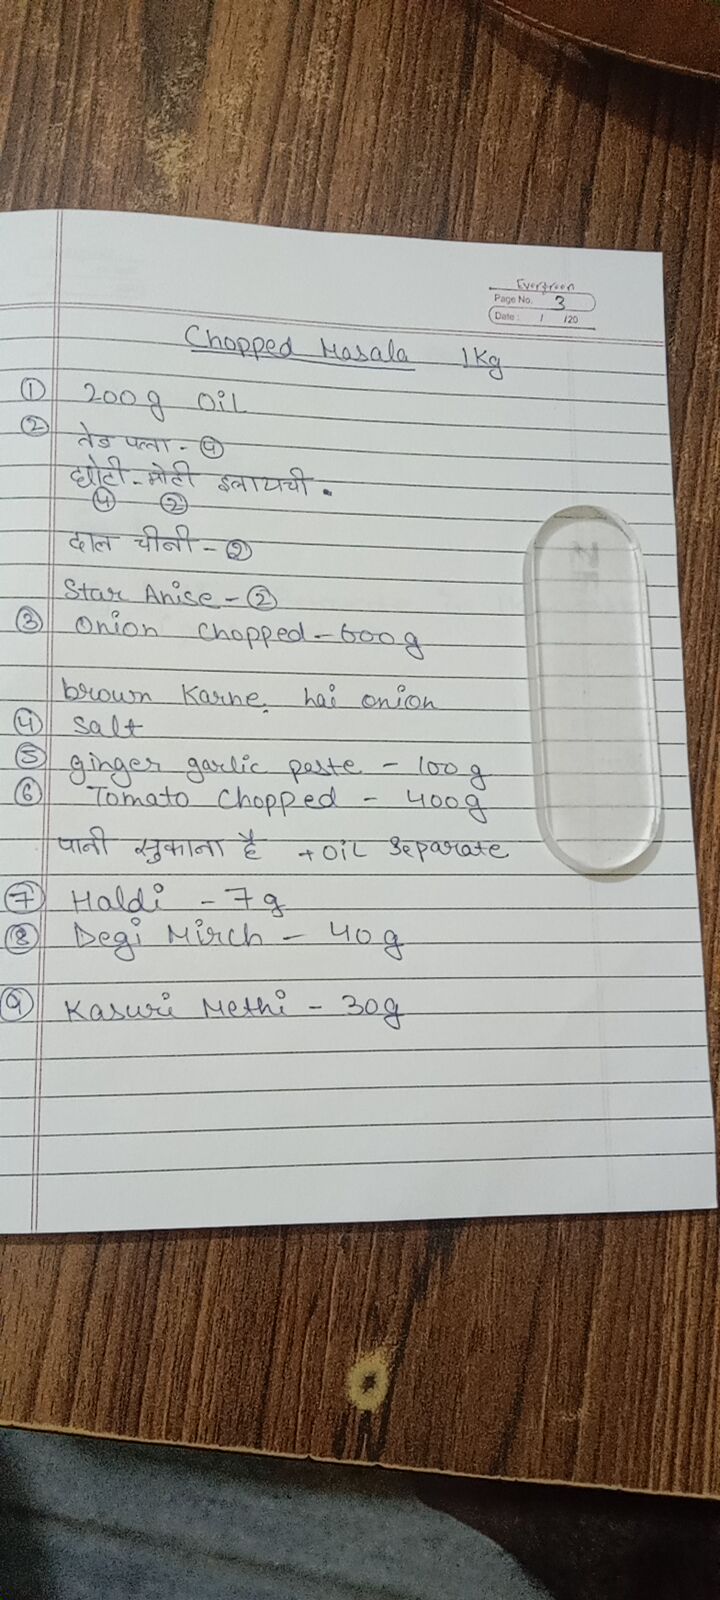 Evergreen
Page No. 3
Date : / /20
Chopped Masala 1Kg
① 200g OiL
② तेज पत्ता - ④
छोटी - मोटी इलायची .
④ ②
दाल चीनी - ②
Star Anise - ②
③ Onion Chopped - 600g
brown Karne hai onion
④ Salt
⑤ ginger garlic paste - 100g
⑥ Tomato Chopped - 400g
पानी सुकाना है + OiL Separate
⑦ Haldi - 7g
⑧ Degi Mirch - 40g
⑨ Kasuri Methi - 30g